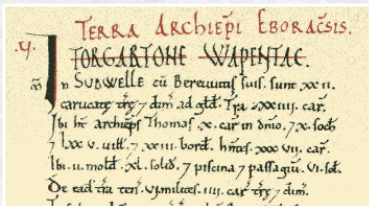 .V. TERRA ARCHIEP̄I EBORAC̄SIS.
TORGARTONE WAPENTAC.
m̄ In SUDWELLE cū Bereuuitis suis. sunt xxii.
carucatę tr̄ę ⁊ dim̄ ad gld̄. Tr̄a xxiiii. car̄.
Ibi ht̄ archiep̄s Thomas .x. car̄ in dn̄io. ⁊ x. soch̄
⁊ lxxv. uill̄. ⁊ xxiii. bord̄. hn̄tes. xxx vii. car̄.
Ibi .ii. mold̄ .xl. solid̄. ⁊ piscina ⁊ passagiū. vi. sol̄.
De ead̄ tr̄a ten̄ . vi. milites. iiii. car̄ tr̄ę ⁊ dim̄.